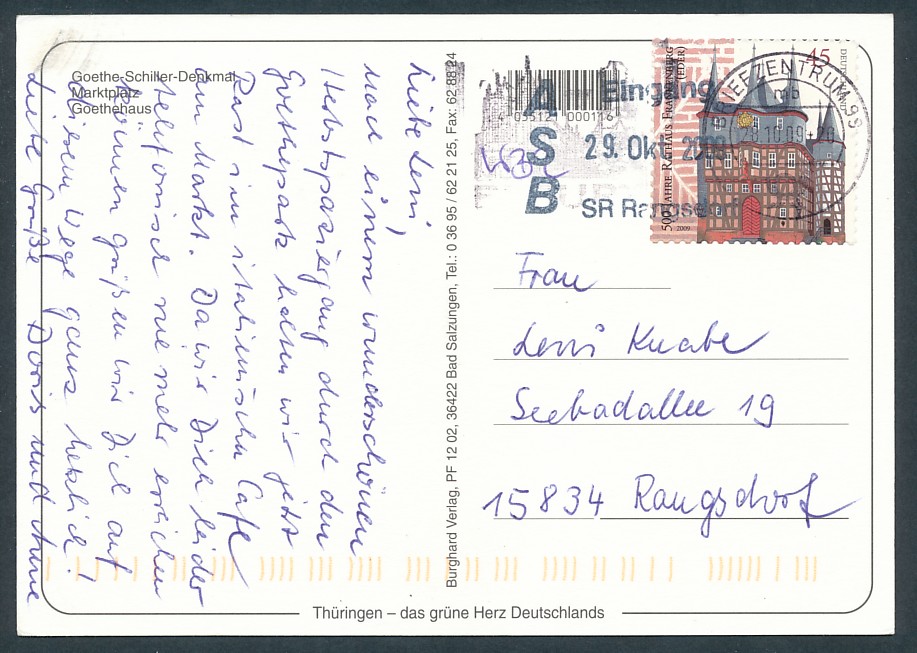 Goethe-Schiller-Denkmal
Marktplatz
Goethehaus
Liebe Leni!
Nach einem wunderschönen
Herbstspaziergang durch den
Goethepark halten wir jetzt
Rast im italienischen Café
am Markt. Da wir Dich leider
telefonisch nie mehr erreichen
können grüßen wir Dich auf
diesem Wege ganz herzlich!
Liebe Grüße Doris und
Burghard Verlag, PF 12 02, 36422 Bad Salzungen, Tel.: 0 36 95 / 62 21 25, Fax: 62 88 24
000116
ASB
Eingang
29. Okt. 2009
SR Rangsd
500 JAHRE RATHAUS FRANKENBERG
(EDER)
2009
45
BRIEFZENTRUM 99
mb
Frau
Leni Knabe
Seebadallee 19
15834 Rangsdorf
Thüringen – das grüne Herz Deutschlands